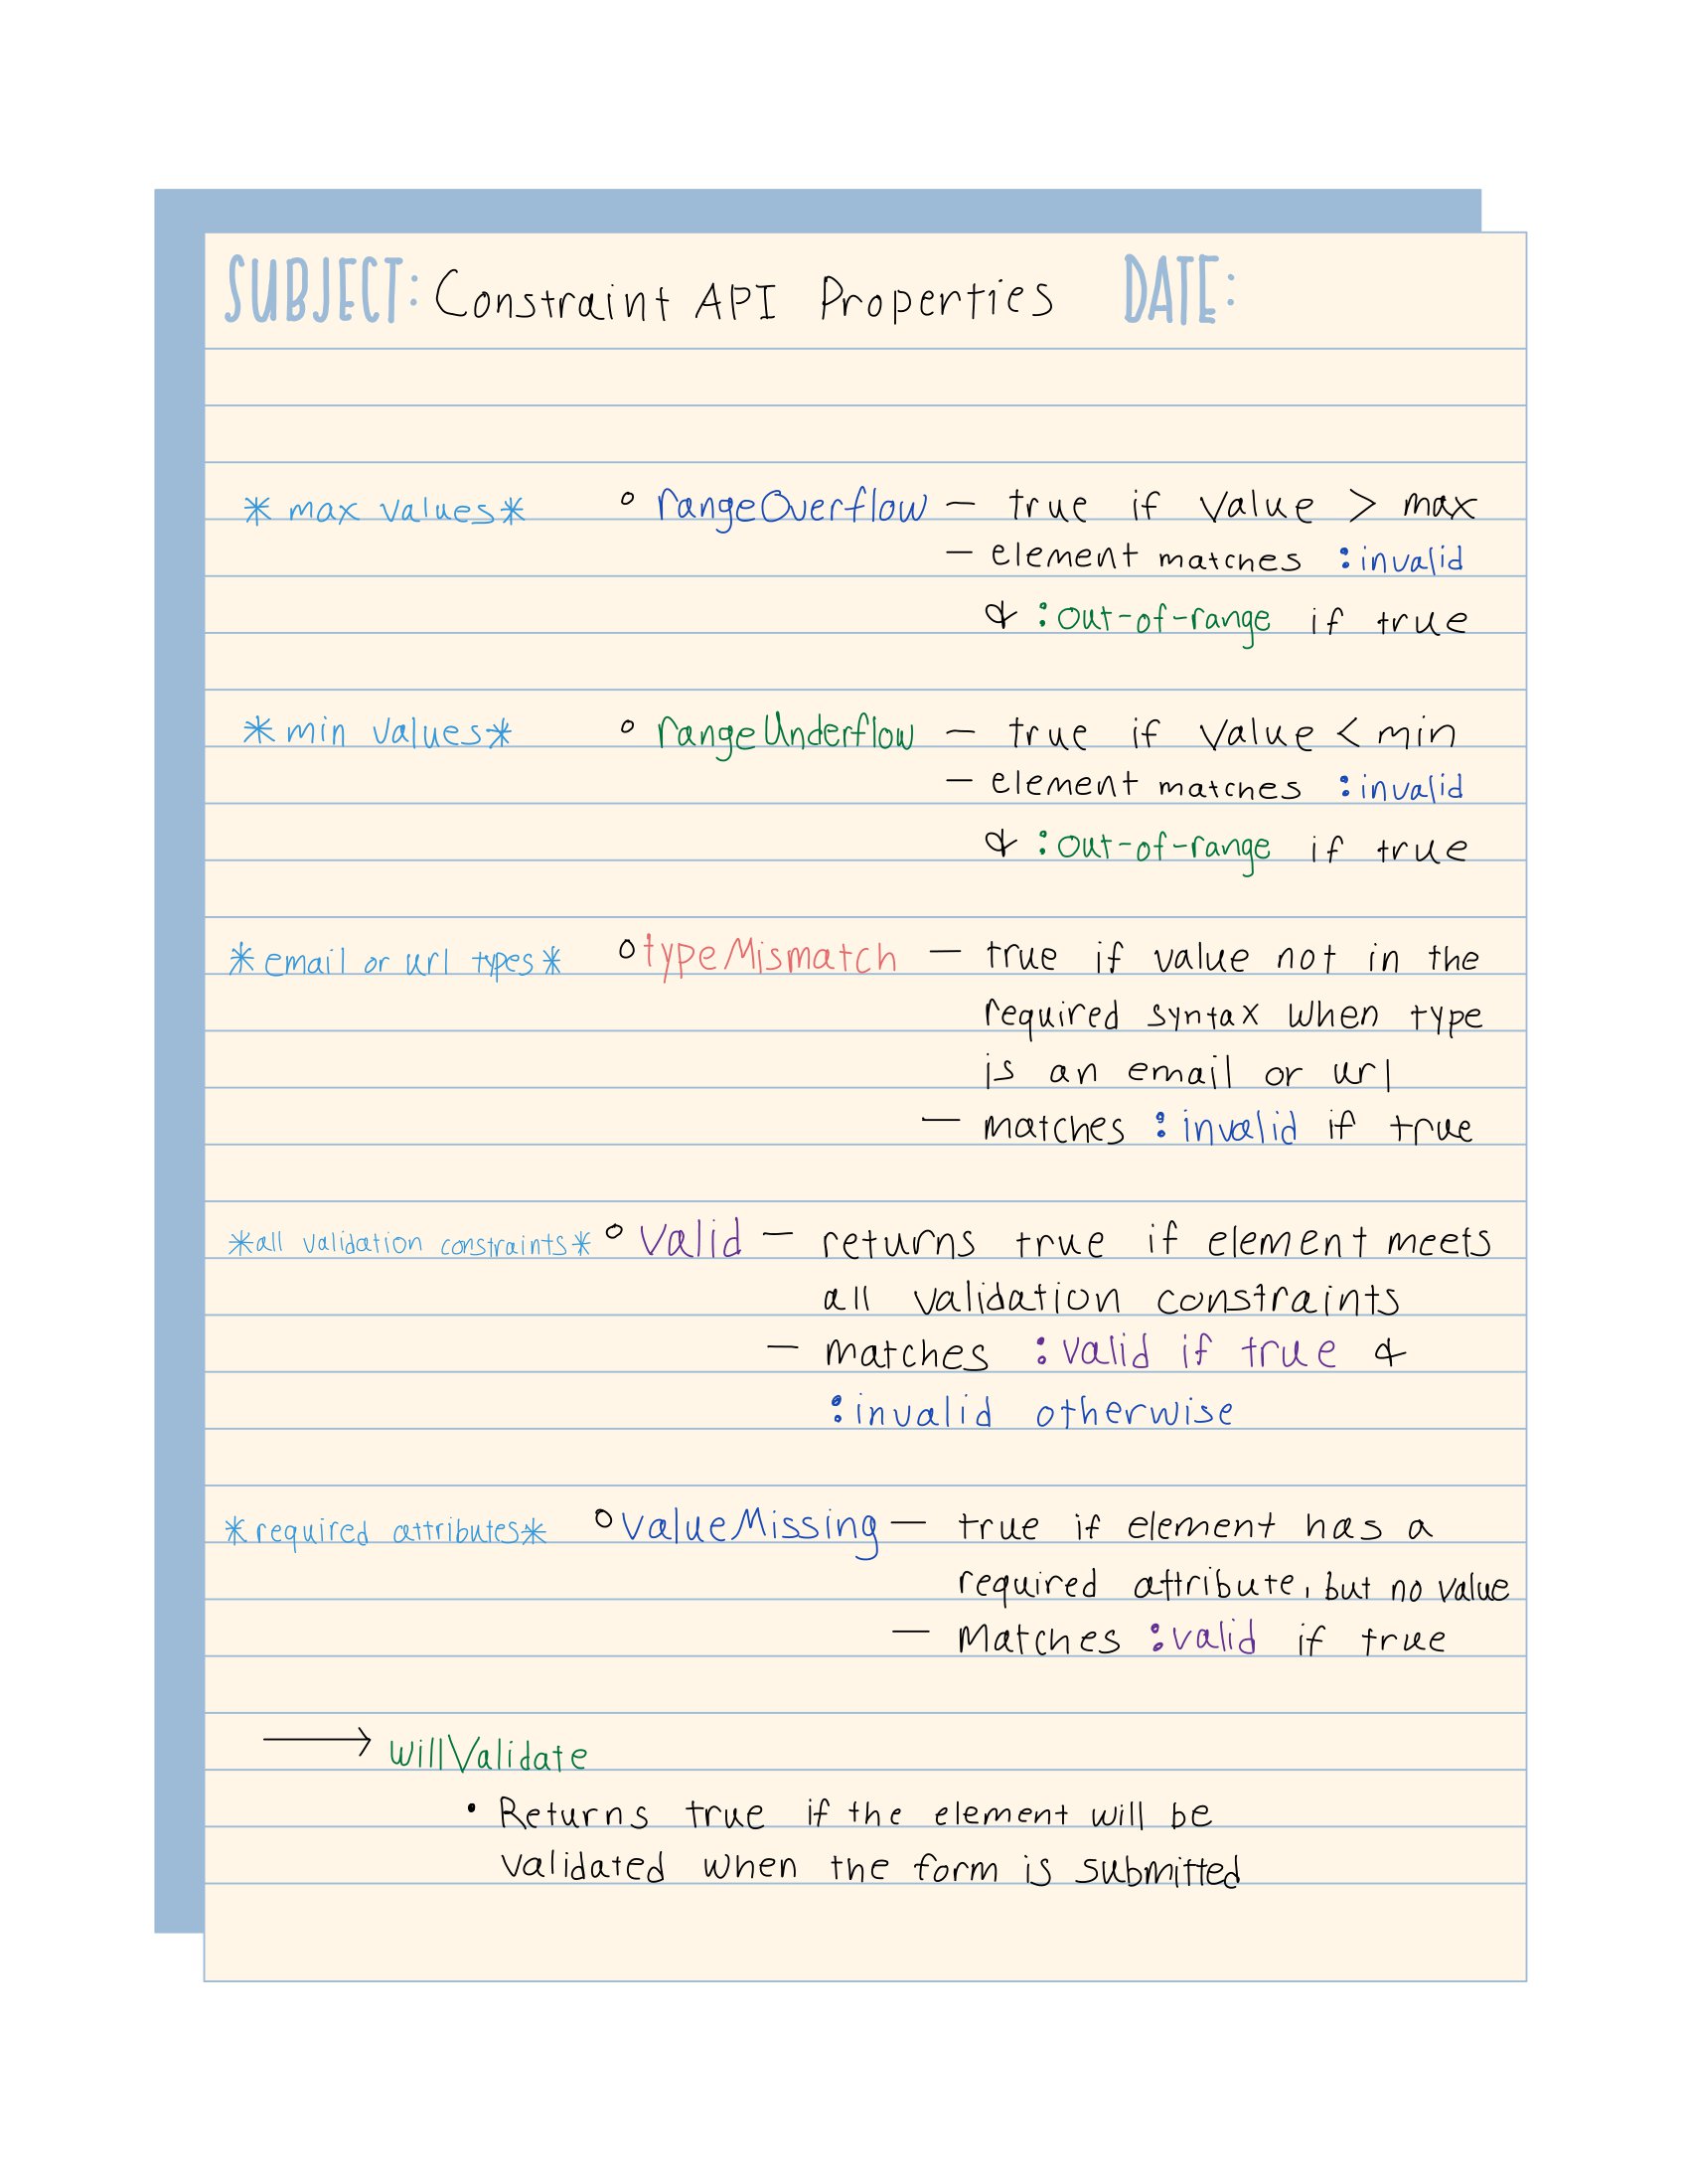 SUBJECT: Constraint API Properties DATE:
*max values* ° rangeOverflow — true if value > max
— element matches :invalid
& :out-of-range if true
*min values* ° rangeUnderflow — true if value < min
— element matches :invalid
& :out-of-range if true
*email or url types* ° typeMismatch — true if value not in the
required syntax when type
is an email or url
— matches :invalid if true
*all validation constraints* ° valid — returns true if element meets
all validation constraints
— matches :valid if true &
:invalid otherwise
*required attributes* ° valueMissing — true if element has a
required attribute, but no value
— Matches :valid if true
→ willValidate
• Returns true if the element will be
validated when the form is submitted